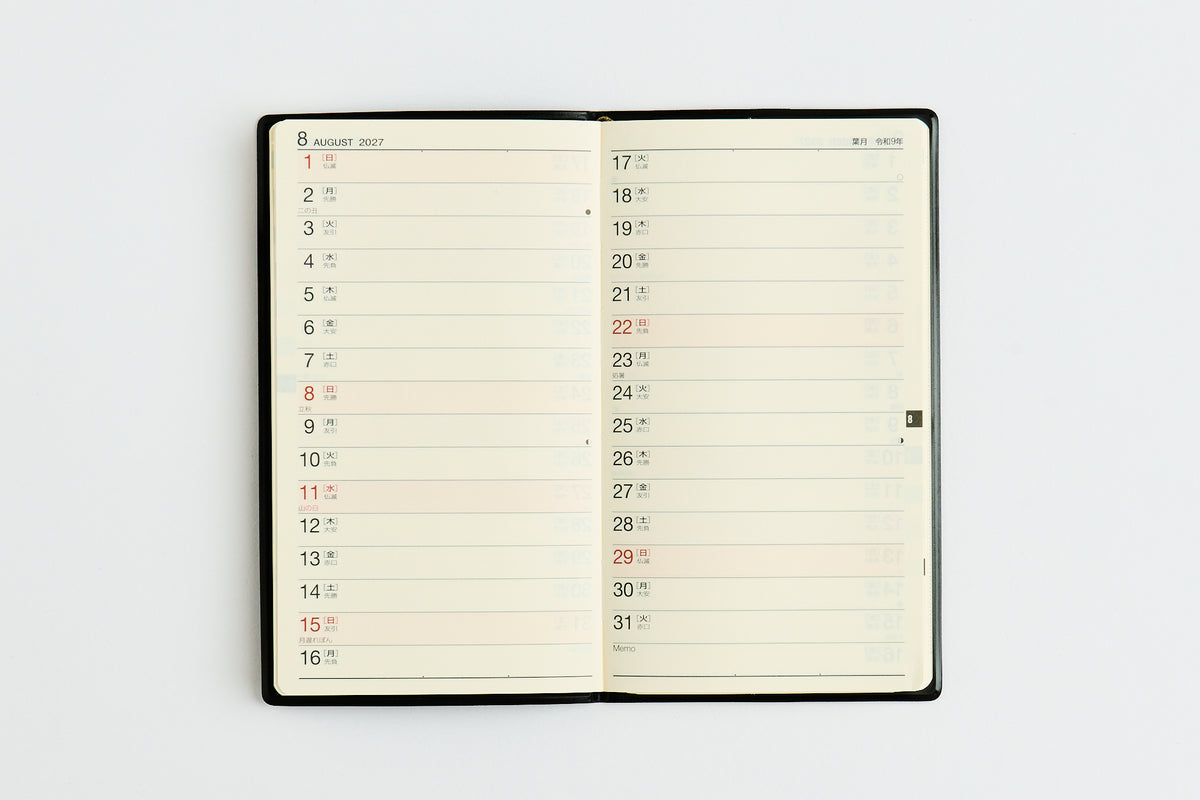 8 AUGUST 2027
1 [日] 仏滅
2 [月] 先勝
二の丑
3 [火] 友引
4 [水] 先負
5 [木] 仏滅
6 [金] 大安
7 [土] 赤口
8 [日] 先勝
立秋
9 [月] 友引
10 [火] 先負
11 [水] 仏滅
山の日
12 [木] 大安
13 [金] 赤口
14 [土] 先勝
15 [日] 友引
月遅れぼん
16 [月] 先負
葉月 令和9年
17 [火] 仏滅
18 [水] 大安
19 [木] 赤口
20 [金] 先勝
21 [土] 友引
22 [日] 先負
23 [月] 仏滅
処暑
24 [火] 大安
25 [水] 赤口
26 [木] 先勝
27 [金] 友引
28 [土] 先負
29 [日] 仏滅
30 [月] 大安
31 [火] 赤口
Memo
8